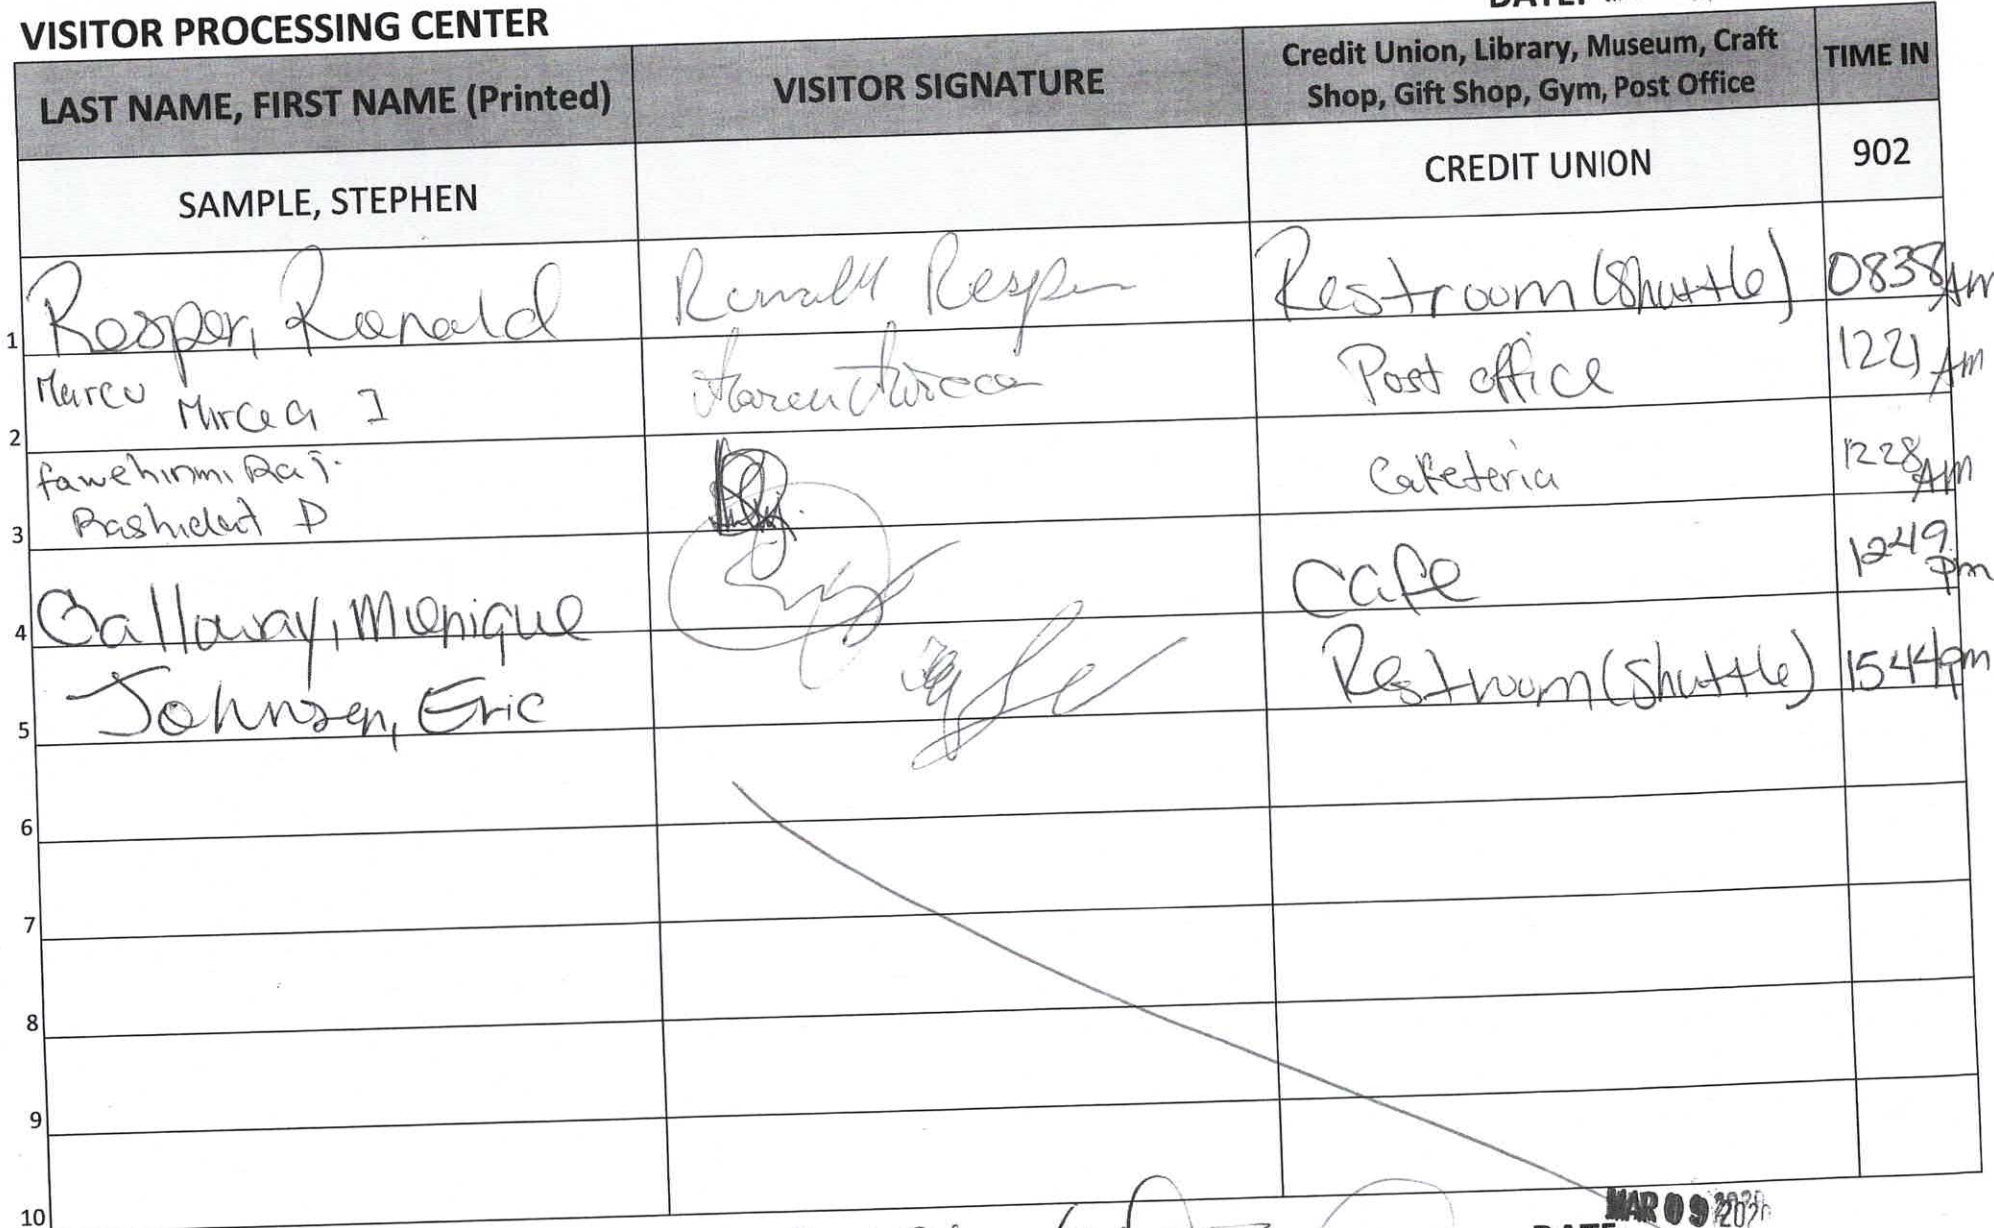 VISITOR PROCESSING CENTER
LAST NAME, FIRST NAME (Printed) VISITOR SIGNATURE Credit Union, Library, Museum, Craft Shop, Gift Shop, Gym, Post Office TIME IN
SAMPLE, STEPHEN CREDIT UNION 902
1 Resper, Ronald Ronald Resper Restroom (Shuttle) 0838 Am
2 Marcu Mircea I Marcu Mircea Post office 1221 Am
3 fawehinmi Raj.
Rashidat D Cafeteria 1228 AM
4 Calloway, Monique Cafe 1249 pm
5 Johnson, Eric Restroom (Shuttle) 1544 pm
6
7
8
9
10
MAR 09 2020